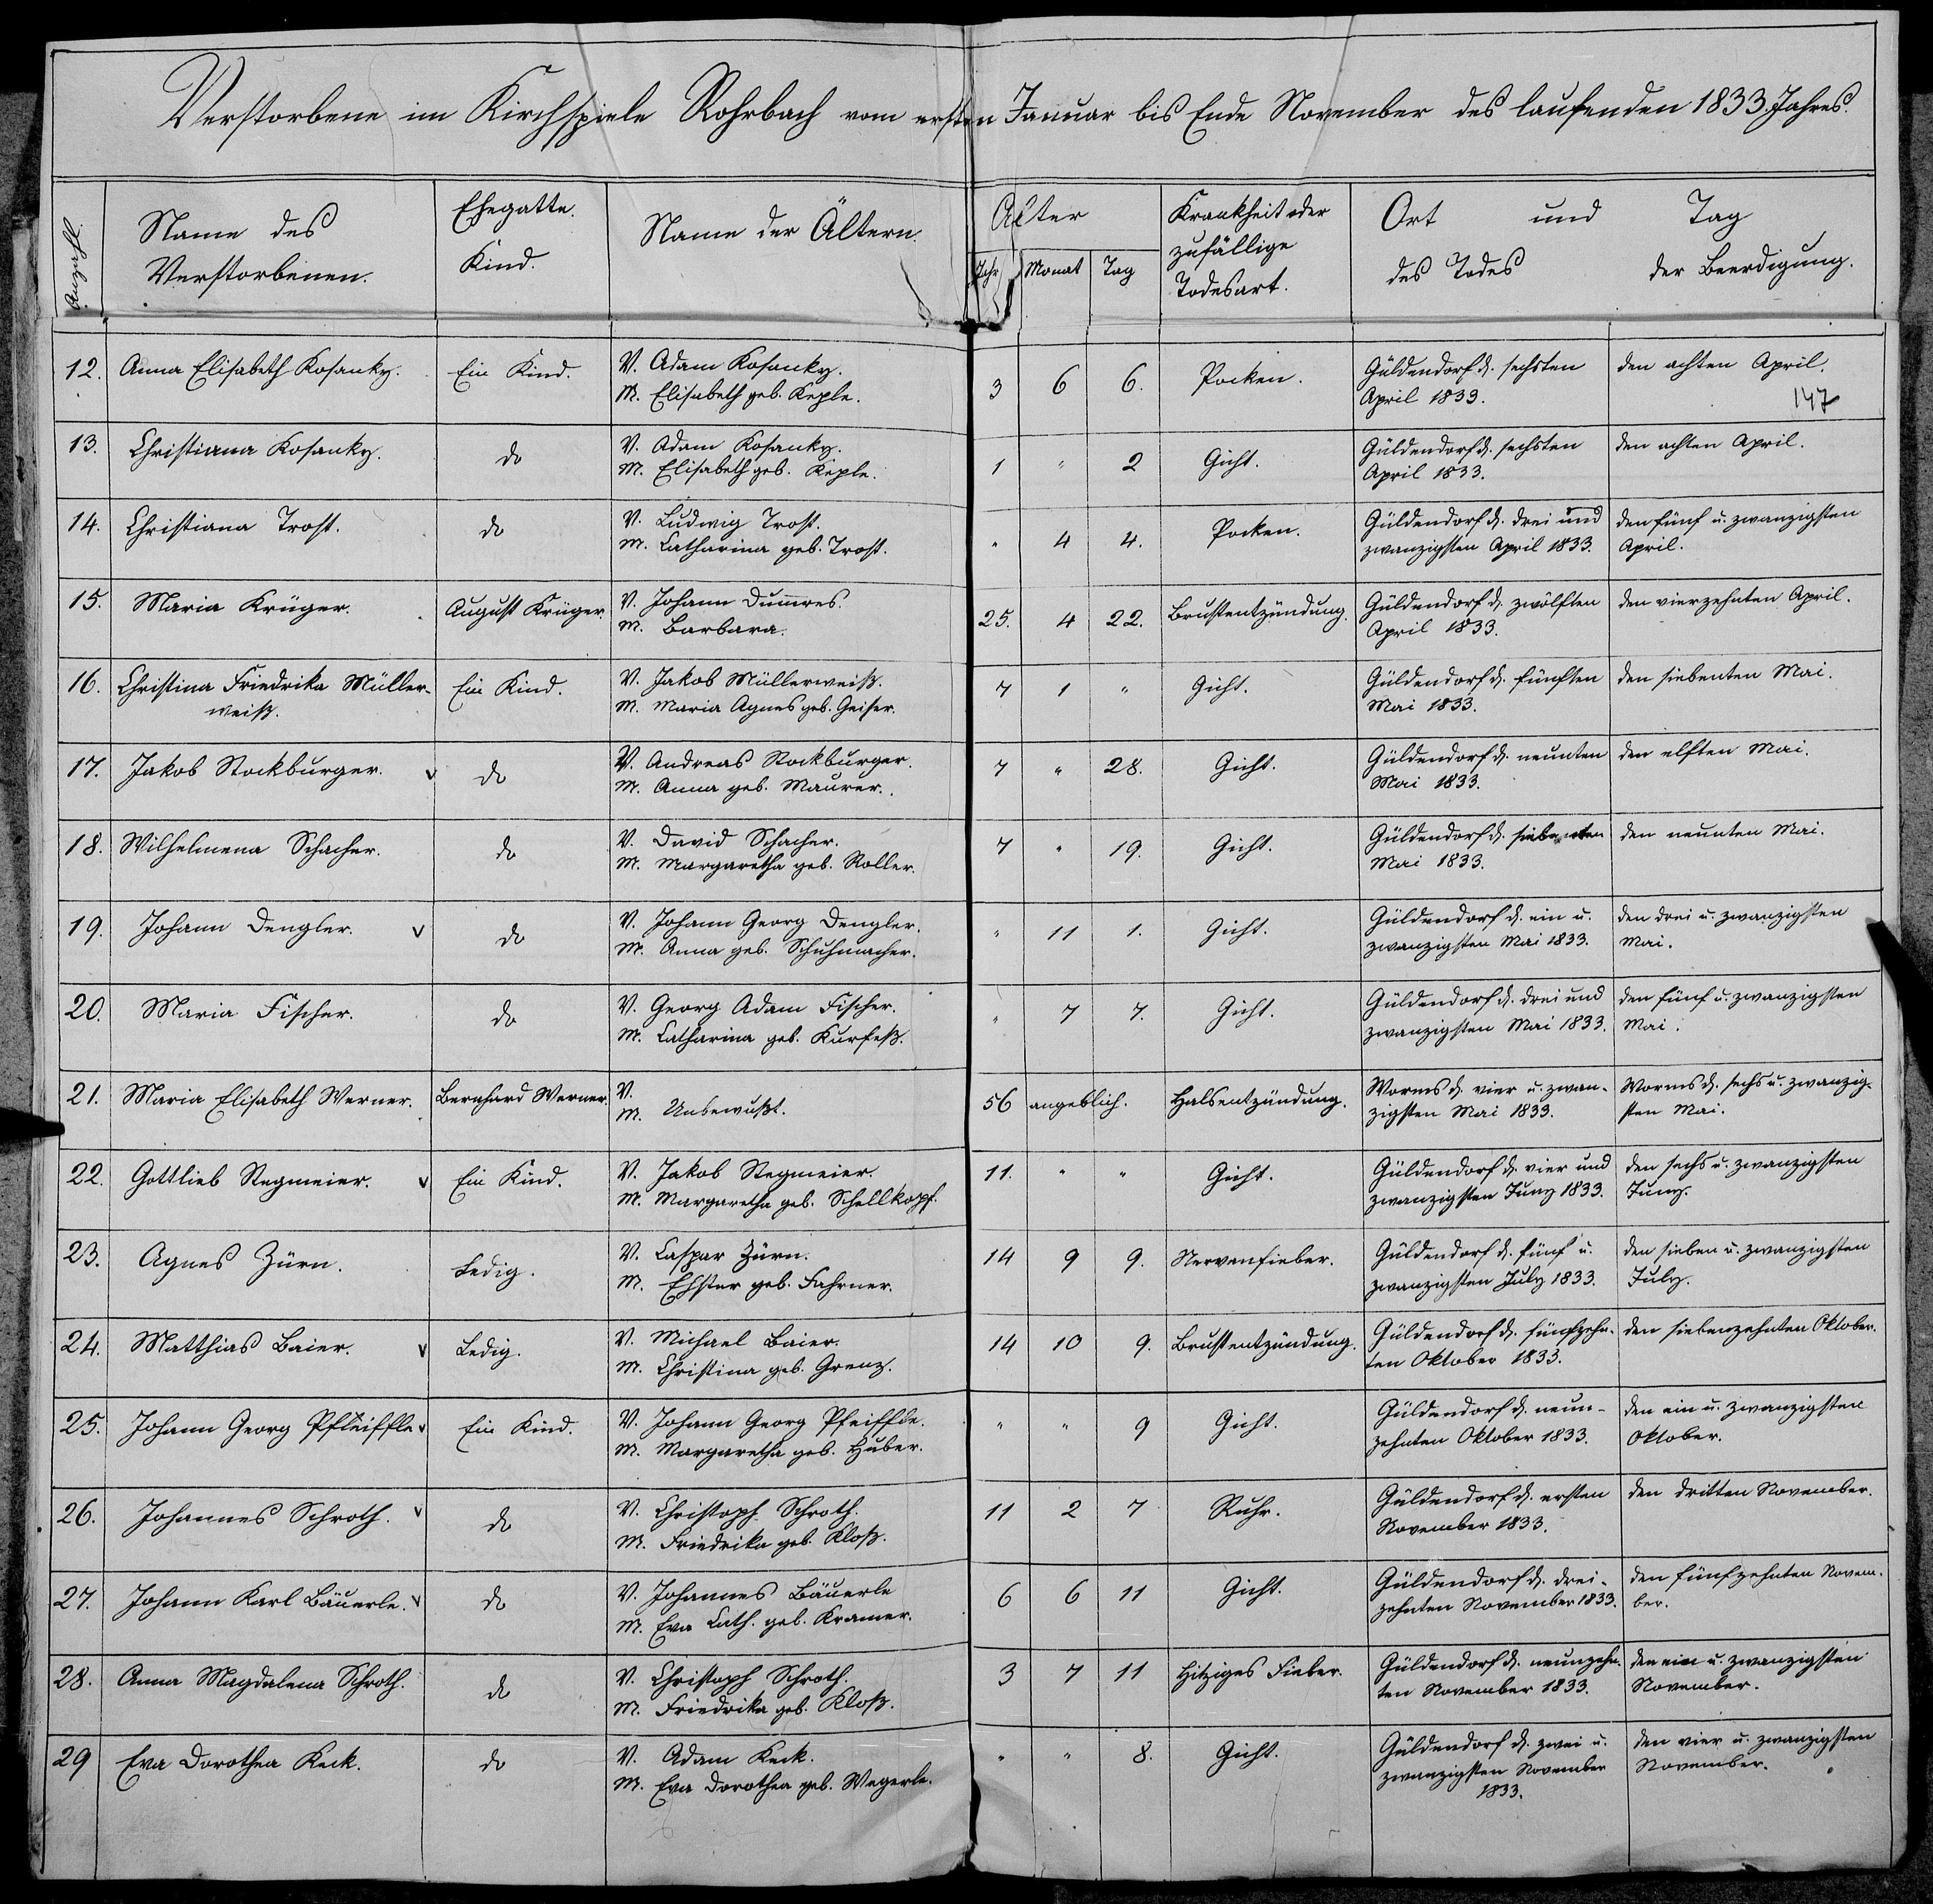 Verstorbene im Kirchspiele Rohrbach vom ersten Januar bis Ende November des laufenden 1833. Jahres.
Name des Verstorbenen. Ehegatte. Kind. Name der Ältern. Alter Jahr Monat Tag Krankheit oder zufällige Todesart. Ort und Tag des Todes der Beerdigung.
12. Anna Elisabeth Kosanky. Ein Kind. V. Adam Kosanky. 3 6 6. Pocken. Güldendorf d. sechsten den achten April.
M. Elisabeth geb. Keple. April 1833. 147
13. Christiana Kosanky. do V. Adam Kosanky. 1 " 2 Gicht. Güldendorf d. sechsten den achten April.
M. Elisabeth geb. Keple. April 1833.
14. Christiana Trost. do V. Ludwig Trost. " 4 4. Pocken. Güldendorf d. drei und den fünf u. zwanzigsten
M. Catharina geb. Trost. zwanzigsten April 1833. April.
15. Maria Krüger. August Krüger. V. Johann Dum̄res. 25. 4 22. Brustentzündung. Güldendorf d. zwölften den vierzehnten April.
M. Barbara. April 1833.
16. Christina Friedrika Müller- Ein Kind. V. Jakob Müllerweiß. 7 1 " Gicht. Güldendorf d. fünften den siebenten Mai.
weiß. M. Maria Agnes geb. Geiser. Mai 1833.
17. Jakob Stockburger. v do V. Andreas Stockburger. 7 " 28. Gicht. Güldendorf d. neunten den elften Mai.
M. Anna geb. Maurer. Mai 1833.
18. Wilhelmena Schacher. do V. David Schacher. 7 " 19. Gicht. Güldendorf d. siebenten den neunten Mai.
M. Margaretha geb. Roller. Mai 1833.
19. Johann Dengler. v do V. Johann Georg Dengler. " 11 1. Gicht. Güldendorf d. ein u. den drei u. zwanzigsten
M. Anna geb. Schuhmacher. zwanzigsten Mai 1833. Mai.
20. Maria Fischer. do V. Georg Adam Fischer. " 7 7. Gicht. Güldendorf d. drei und den fünf u. zwanzigsten
M. Catharina geb. Kurfeß. zwanzigsten Mai 1833. Mai.
21. Maria Elisabeth Werner. Bernhard Werner. V. 56 angeblich. Halsentzündung. Worms d. vier u. zwan- Worms d. sechs u. zwanzig-
M. Unbewußt. zigsten Mai 1833. sten Mai.
22. Gottlieb Stegmeier. v Ein Kind. V. Jakob Stegmeier. 11. " " Gicht. Güldendorf d. vier und den sechs u. zwanzigsten
M. Margaretha geb. Schellkopf. zwanzigsten Juny 1833. Juny.
23. Agnes Zürn. Ledig. V. Caspar Zürn. 14 9 9. Nervenfieber. Güldendorf d. fünf u. den sieben u. zwanzigsten
M. Ehster geb. Fahrner. zwanzigsten July 1833. July.
24. Matthias Baier. v Ledig. V. Michael Baier. 14 10 9. Brustentzündung. Güldendorf d. fünfzehn- den siebenzehnten Oktober.
M. Christina geb. Grenz. ten Oktober 1833.
25. Johann Georg Pfleiffle v Ein Kind. V. Johann Georg Pfeiffle. " " 9 Gicht. Güldendorf d. neun- den ein u. zwanzigsten
M. Margaretha geb. Huber. zehnten Oktober 1833. Oktober.
26. Johannes Schroth. v do V. Christoph Schroth. 11 2 7 Ruhr. Güldendorf d. ersten den dritten November.
M. Friedrika geb. Kloß. November 1833.
27. Johann Karl Bäuerle. v do V. Johannes Bäuerle 6 6 11 Gicht. Güldendorf d. drei- den fünfzehnten Novem-
M. Eva Cath. geb. Kramer. zehnten November 1833. ber.
28. Anna Magdalena Schroth. do V. Christoph Schroth. 3 7 11 Hitziges Fieber. Güldendorf d. neunzehn- den ein u. zwanzigsten
M. Friedrika geb. Kloß. ten November 1833. November.
29 Eva Dorothea Keck. do V. Adam Keck. " " 8. Gicht. Güldendorf d. zwei u. den vier u. zwanzigsten
M. Eva Dorothea geb. Wegerle. zwanzigsten November November.
1833.